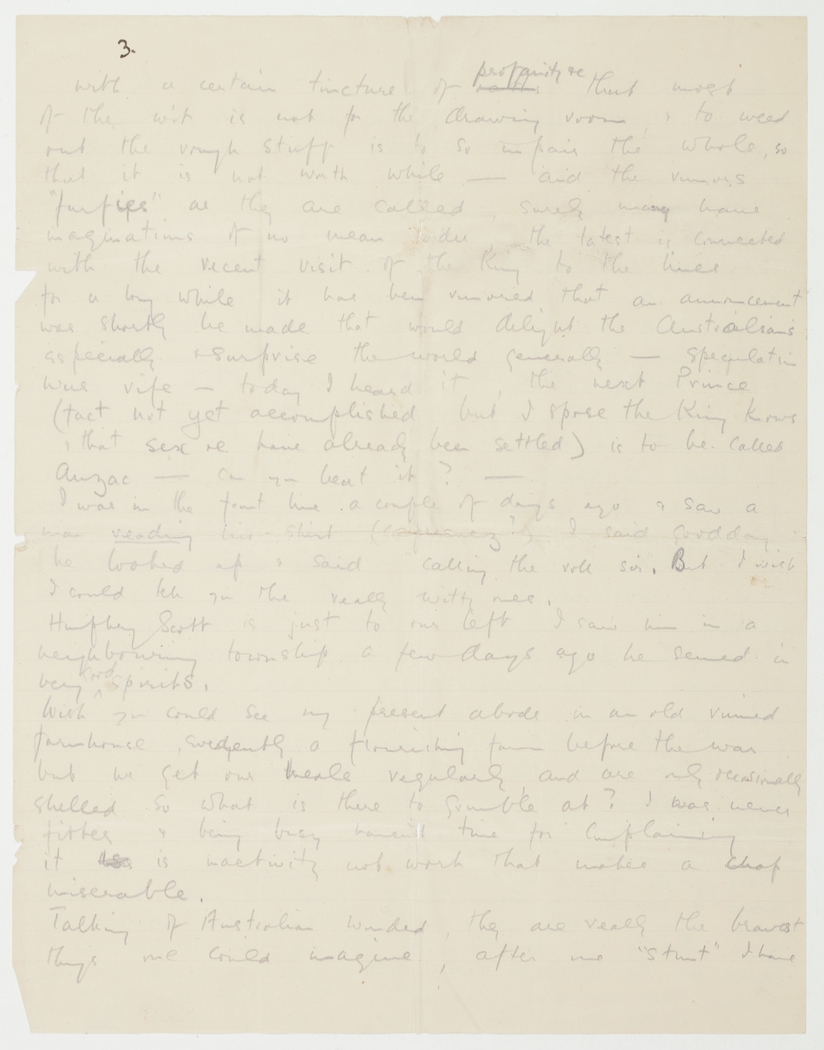 3.
with a certain tincture of profanity &c that most
of the wit is not for the drawing room, & to weed
out the rough stuff is to so impair the whole, so
that it is not worth while — and the rumors
"furfies" as they are called surely many have
imaginations of no mean order, the latest is connected
with the recent visit of the King to the lines
for a long while it has been rumored that an announcement
was shortly be made that would delight the Australians
especially & surprise the world generally — speculation
was rife — today I heard it, the next Prince
(fact not yet accomplished but I spose the King knows
& that sex &c have already been settled) is to be called
Anzac — can you beat it? —
I was in the front line a couple of days ago & saw a
man reading his shirt I said good day
he looked up & said calling the roll sir. But I wish
I could tell you the really witty ones.
Humphrey Scott is just to our left I saw him in a
neighbouring township a few days ago he seemed in
very good spirits.
Wish you could see my present abode in an old ruined
farmhouse, evidently a flourishing farm before the war
but we get our meals regularly and are only occasionally
shelled so what is there to grumble at? I was never
fitter & being busy havent time for complaining
it is inactivity not work that makes a chap
miserable.
Talking of Australian wounded, they are really the bravest
things one could imagine, after one "stunt" I have